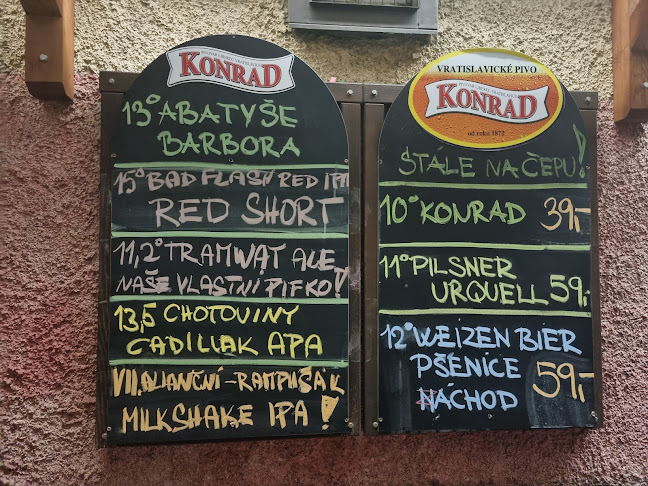 KONRAD
13° ABATYŠE
BARBORA
15° BAD FLASH RED IPA
RED SHORT
11,2° TRAMWAY ALE
NAŠE VLASTNÍ PIFKO!
13,5 CHOTOVINY
CADILLAK APA
VII. ALIANČNÍ - RAMPUŠÁK
MILKSHAKE IPA!
VRATISLAVICKÉ PIVO
KONRAD
od roku 1872
STÁLE NA ČEPU!
10° KONRAD 39,-
11° PILSNER
URQUELL 59,-
12° WEIZEN BIER
PŠENICE 59,-
NÁCHOD